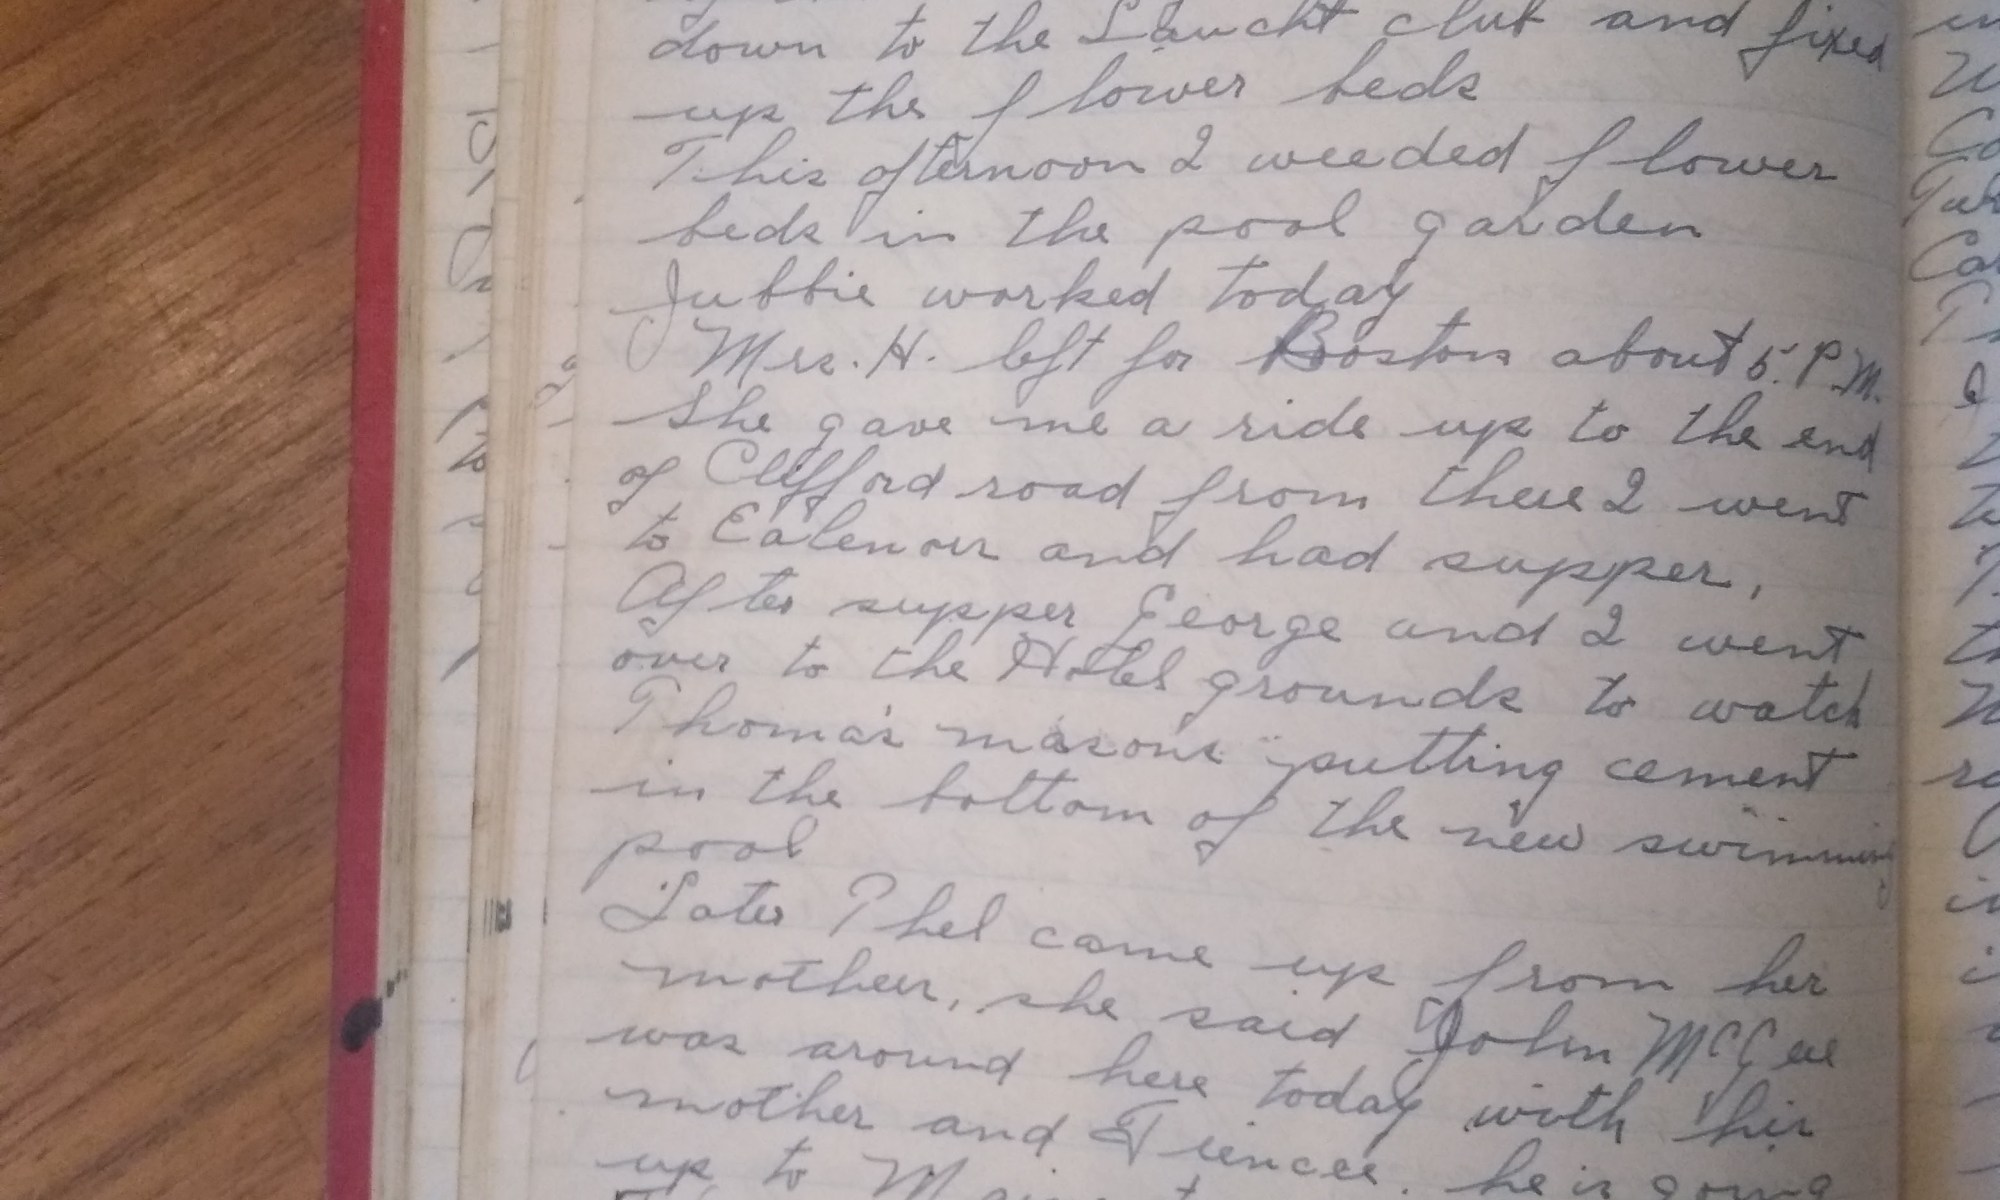 down to the club and fixed
up the flower beds
This afternoon I weeded flower
beds in the pool garden
Jubbie worked today
Mrs. H. left for Boston about 5. P.M.
She gave me a ride up to the end
of Clifford road from there I went
to Ealenour and had supper,
After supper George and I went
over to the Hotel grounds to watch
Thomas masons putting cement
in the bottom of the new swimming
pool
Later Phel came up from her
mother, she said John McGee
was around here today with his
mother and Fiencee. he is going
up to